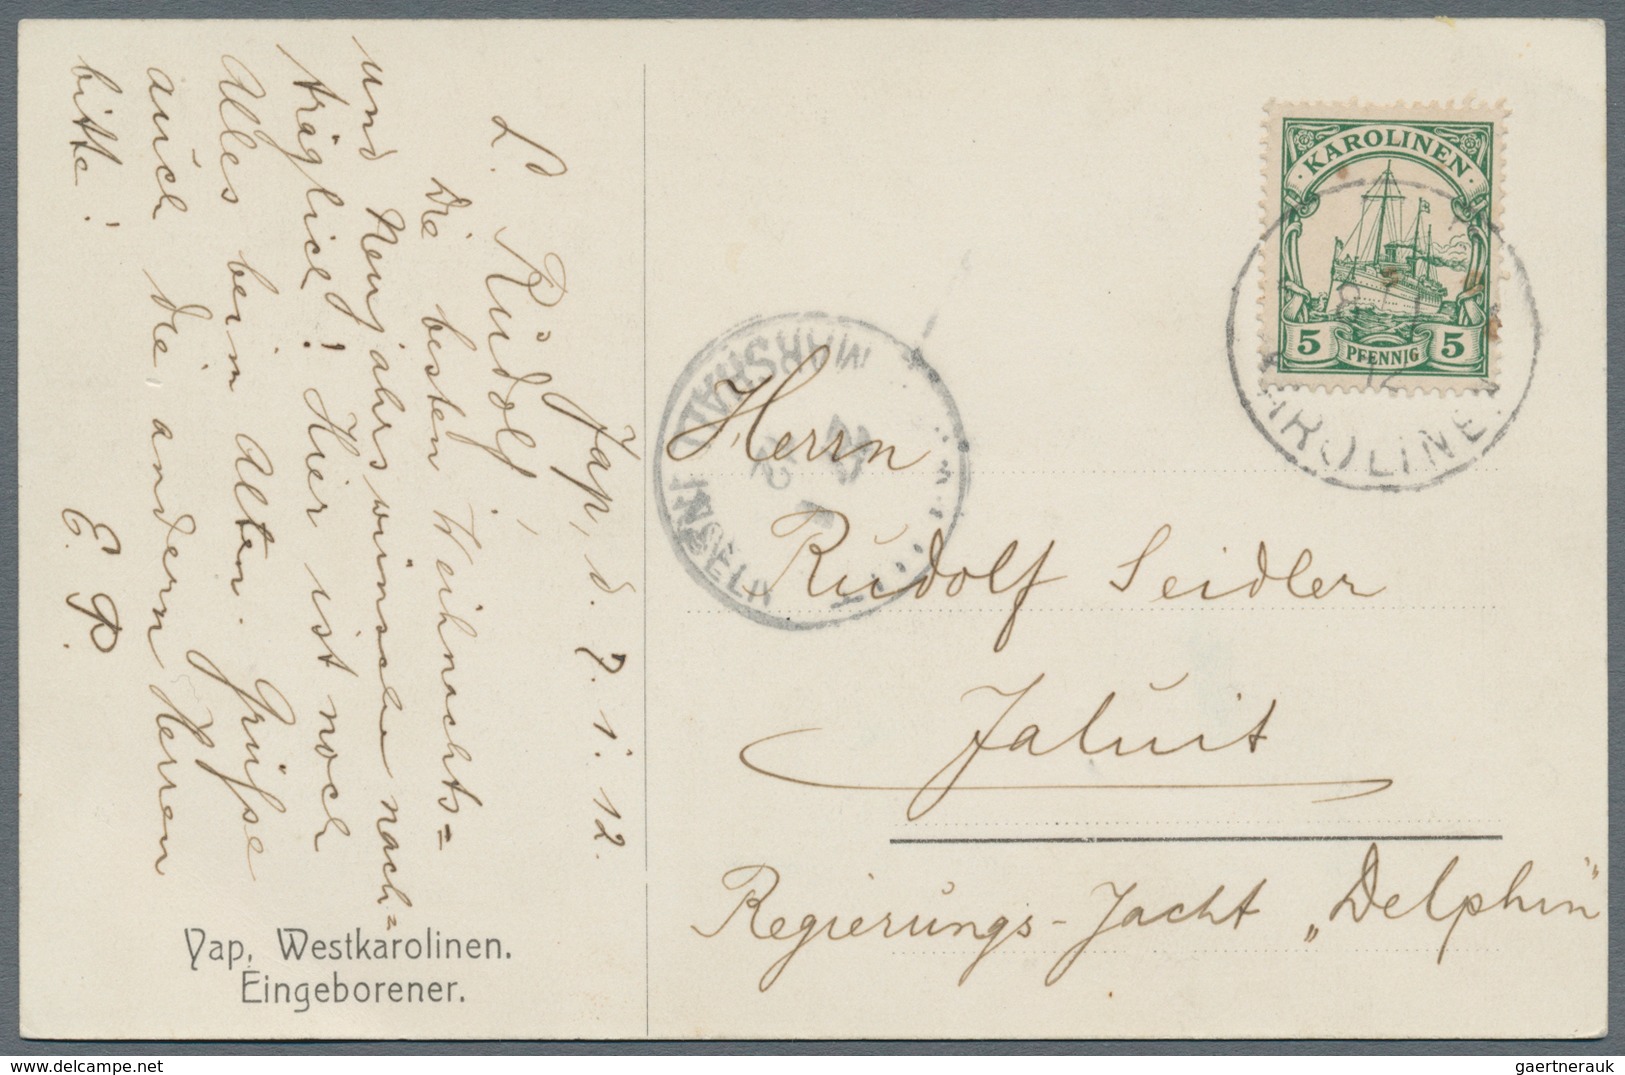 Jap, d. 7.1.12.
L. Rudolf!
Die besten Weihnachts=
und Neujahrswünsche nach=
träglich! Hier ist noch
Alles beim Alten. Grüsse
auch die andern Herren
bitte!
E. P.
Yap, Westkarolinen.
Eingeborener.
KAROLINEN
5 PFENNIG 5
KAROLINEN
MARSHALL INSELN
Herrn
Rudolf Seidler
Jaluit
Regierungs-Jacht „Delphin"
gaertnerauk
www.delcampe.net